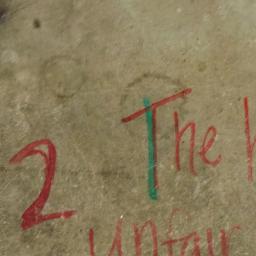 2 The
unfair